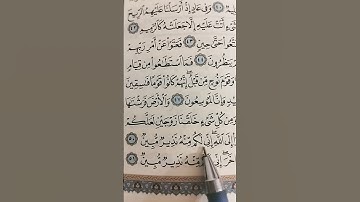 وَفِي عَادٍ إِذْ أَرْسَلْنَا عَلَيْهِمُ ٱلرِّيحَ
شَيْءٍ أَتَتْ عَلَيْهِ إِلَّا جَعَلَتْهُ كَٱلرَّمِيمِ ٤٢
حَتَّىٰ حِينٍ ٤٣ فَعَتَوْا۟ عَنْ أَمْرِ رَبِّهِمْ
يَنظُرُونَ ٤٤ فَمَا ٱسْتَطَٰعُوا۟ مِن قِيَامٍ
وَقَوْمَ نُوحٍ مِّن قَبْلُ إِنَّهُمْ كَانُوا۟ قَوْمًا فَٰسِقِينَ
وَإِنَّا لَمُوسِعُونَ ٤٧ وَٱلْأَرْضَ فَرَشْنَٰهَا
وَمِن كُلِّ شَيْءٍ خَلَقْنَا زَوْجَيْنِ لَعَلَّكُمْ
إِلَى ٱللَّهِ إِنِّي لَكُم مِّنْهُ نَذِيرٌ مُّبِينٌ ٥٠
إِنِّي لَكُم مِّنْهُ نَذِيرٌ مُّبِينٌ ٥١